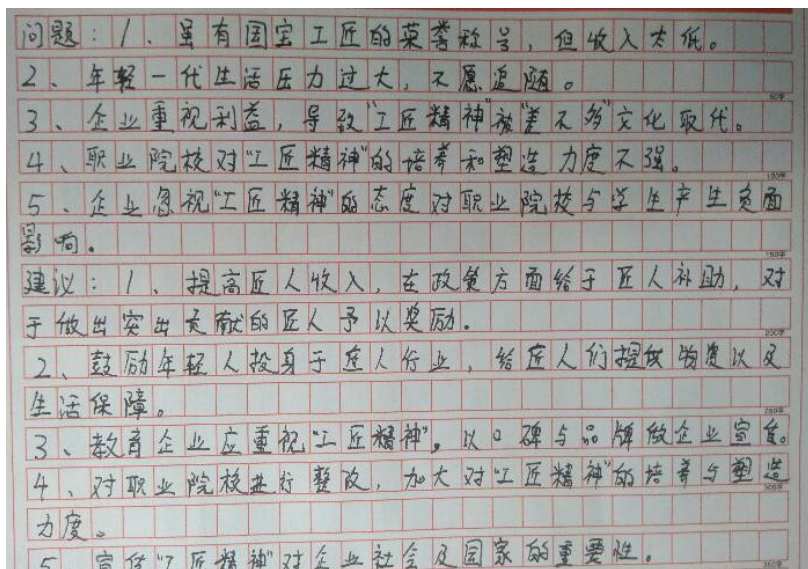 问题：1、虽有国宝工匠的荣誉称号，但收入太低。
2、年轻一代生活压力过大，不愿追随。
50字
3、企业重视利益，导致"工匠精神"被"差不多"文化取代。
4、职业院校对"工匠精神"的培养和塑造力度不强。
100字
5、企业忽视"工匠精神"的态度对职业院校与学生产生负面
影响。
150字
建议：1、提高匠人收入，在政策方面给于匠人补助，对
于做出突出贡献的匠人予以奖励。
200字
2、鼓励年轻人投身于匠人行业，给匠人们提供物资以及
生活保障。
250字
3、教育企业应重视"工匠精神"。以口碑与品牌做企业宣传。
4、对职业院校进行整改，加大对"工匠精神"的培养与塑造
300字
力度。
5、宣传"工匠精神"对企业社会及国家的重要性。
350字